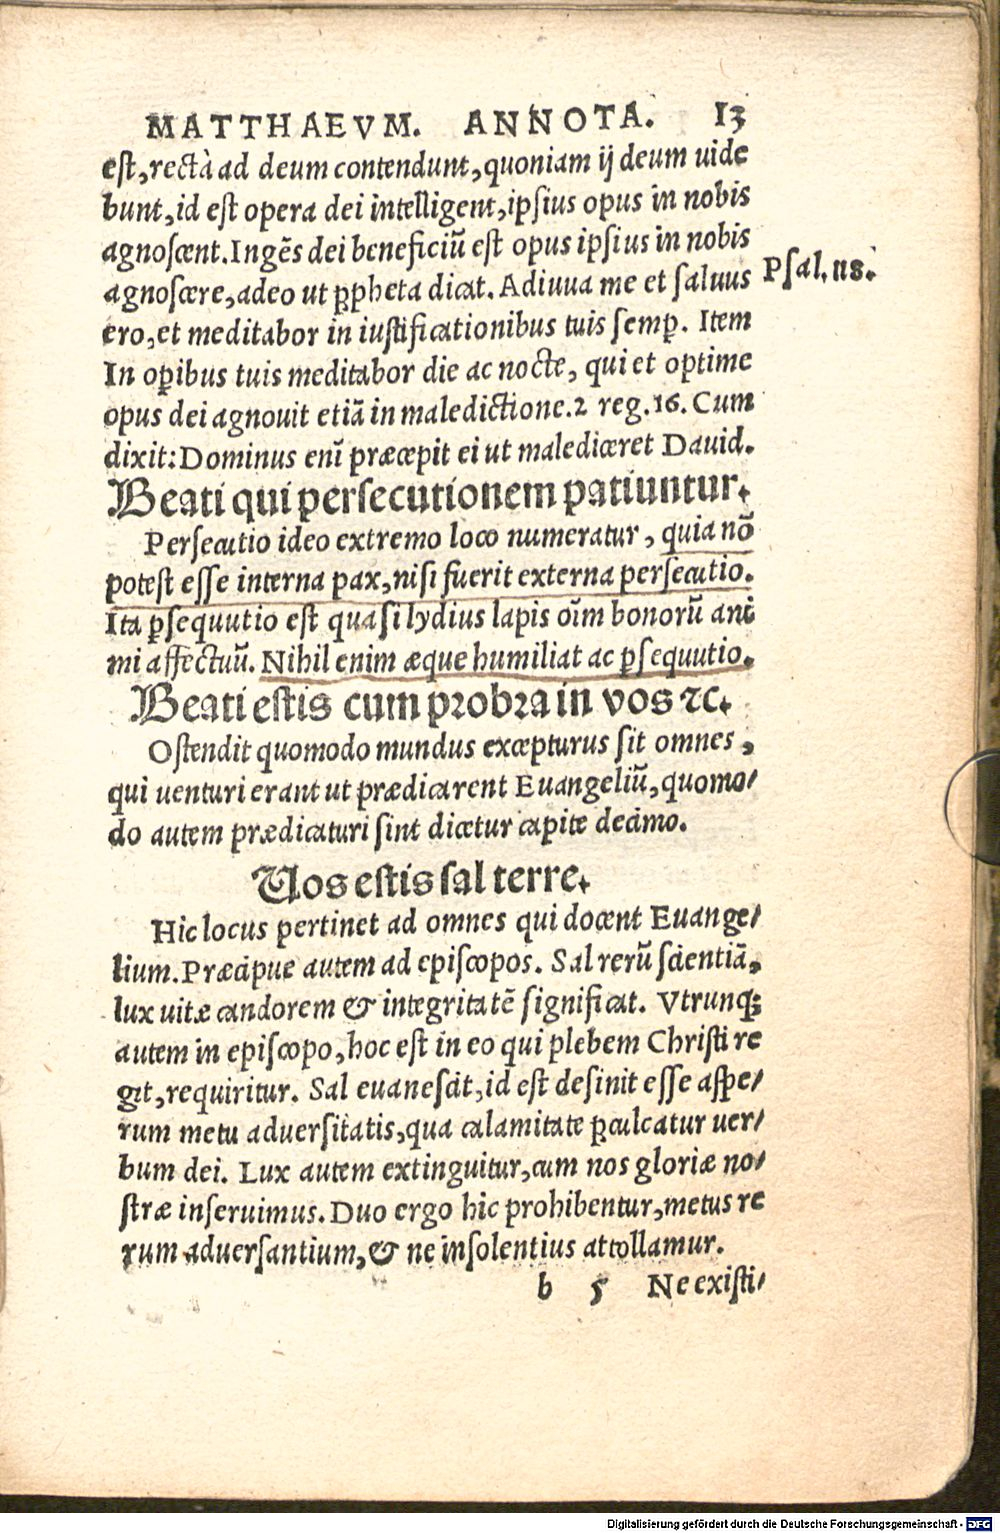 MATTHAEVM. ANNOTA. 13
est, rectà ad deum contendunt, quoniam ij deum uide
bunt, id est opera dei intelligent, ipsius opus in nobis
agnoscent. Ingẽs dei beneficiũ est opus ipsius in nobis
agnoscere, adeo ut ꝓpheta dicat. Adiuua me et saluus
Psal. 118.
ero, et meditabor in iustificationibus tuis semꝑ. Item
In oꝑibus tuis meditabor die ac nocte, qui et optime
opus dei agnovit etiã in maledictione. 2 reg. 16. Cum
dixit: Dominus enĩ præcepit ei ut malediceret David.
Beati qui persecutionem patiuntur.
Persecutio ideo extremo loco numeratur, quia nõ
potest esse interna pax, nisi fuerit externa persecutio.
Ita ꝑsequutio est quasi lydius lapis oĩm bonorũ ani
mi affectuũ. Nihil enim æque humiliat ac ꝑsequutio.
Beati estis cum probra in vos ⁊c.
Ostendit quomodo mundus excepturus sit omnes,
qui uenturi erant ut prædicarent Euangeliũ, quomo/
do autem prædicaturi sint dicetur capite decimo.
Vos estis sal terre.
Hic locus pertinet ad omnes qui docent Euange/
lium. Præcipue autem ad episcopos. Sal rerũ scientiã,
lux uitæ candorem & integritatẽ significat. Vtrunqꝫ
autem in episcopo, hoc est in eo qui plebem Christi re
git, requiritur. Sal euanescit, id est desinit esse aspe/
rum metu adversitatis, qua calamitate ꝓculcatur uer/
bum dei. Lux autem extinguitur, cum nos gloriæ no/
stræ inseruimus. Duo ergo hic prohibentur, metus re
rum adversantium, & ne insolentius attollamur.
b 5 Ne existi/
Digitalisierung gefördert durch die Deutsche Forschungsgemeinschaft - DFG